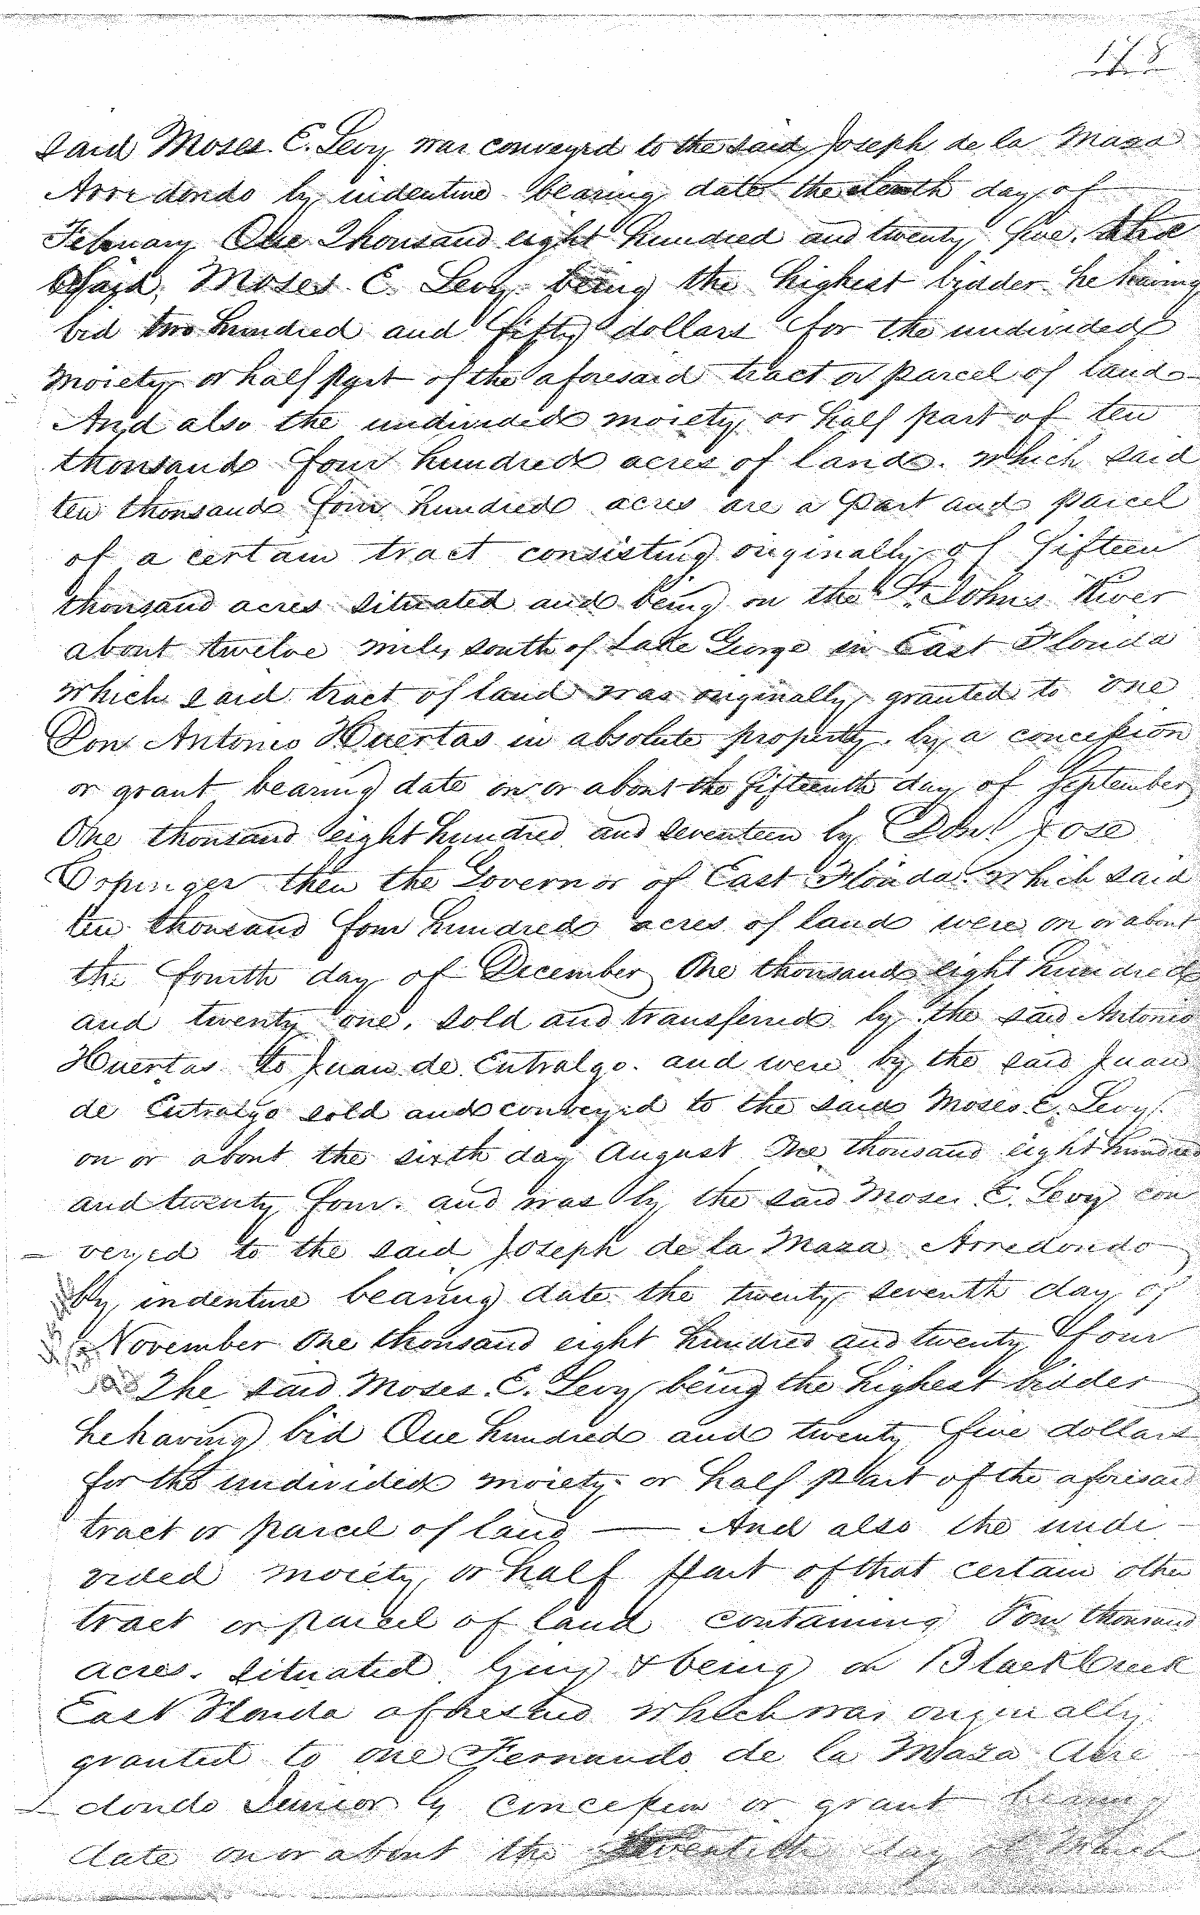 178
said Moses. E. Levy was conveyed to the said Joseph de la Maza
Arredondo by indenture bearing date the tenth day of
February One Thousand eight hundred and twenty five. the
said, Moses E. Levy being the highest bidder he having
bid two hundred and fifty dollars for the undivided
moiety or half part of the aforesaid tract or parcel of land
And also the undivided moiety or half part of ten
thousand four hundred acres of land. which said
ten thousand four hundred acres are a part and parcel
of a certain tract consisting originally of fifteen
thousand acres situated and being on the St. Johns River
about twelve miles south of Lake George in East Florida
which said tract of land was originally granted to one
Don Antonio Huertas in absolute property. by a concession
or grant bearing date on or about the fifteenth day of September
One thousand eight hundred and seventeen by Don Jose
Coppinger then the Governor of East Florida. which said
ten thousand four hundred acres of land were on or about
the fourth day of December One thousand eight hundred
and twenty one, sold and transferred by the said Antonio
Huertas to Juan de Entralgo. and were by the said Juan
de Entralgo sold and conveyed to the said Moses. E. Levy.
on or about the sixth day August One thousand eight hundred
and twenty four. and was by the said Moses. E. Levy con
- veyed to the said Joseph de la Maza Arredondo
by indenture bearing date the twenty seventh day of
November One thousand eight hundred and twenty four
The said Moses. E. Levy being the highest bidder
he having bid One hundred and twenty five dollars
for the undivided moiety or half part of the aforesaid
tract or parcel of land — And also the undi-
vided moiety or half part of that certain other
tract or parcel of land containing Four thousand
acres. situated lying & being on Black Creek
East Florida aforesaid which was originally
granted to one Fernando de la Maza Arre
- dondo Junior by concession or grant bearing
date on or about the twentieth day of March